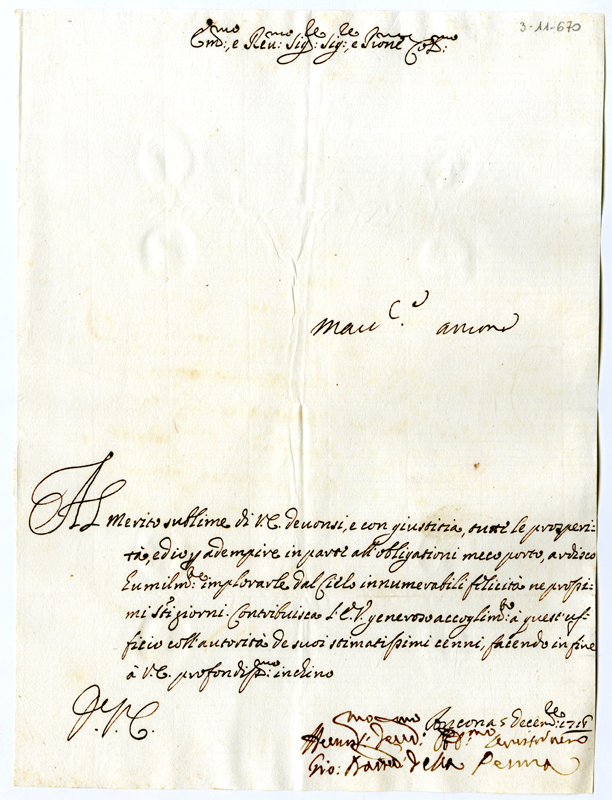 3-11-670
Em:mo, e Reu:mo Sig:re Sig:re, e Prone Col:mo
Ancona
Al Merito sublime di V.E. deuonsi, e con giustitia, tutte le prosperi-
tà, ed io p adempire in parte all'obligationi meco porto, ardisco
humilm:te implorarle dal Cielo innumerabili felicità ne prossi-
mi S:ti giorni. Contribuisca l'E.V. generoso accoglim:to à quest'uf-
ficio coll'autorità de suoi stimatissimi cenni, facendo in fine
à V.E. profondiss:mo inchino
Ancona 5 Decem:re 1716
Gio: Batta della Penna